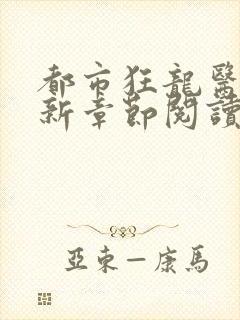 都市狂龍醫
新章節閱讀
亞東—康馬